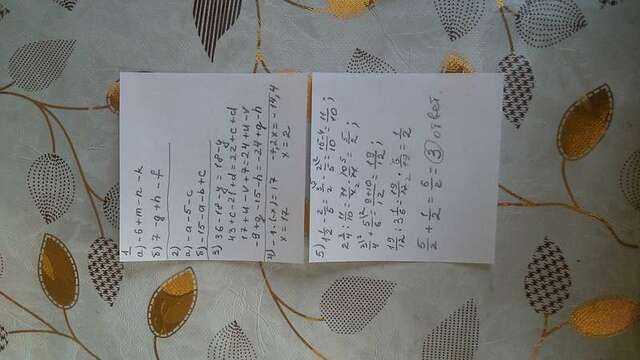 1
а) -6+m-n-k
б) 7-g+h-f
2)
а) -a-5-c
б) -15-a-b+c
3) 36-18-y=18-y
43+c-21+d=22+c+d
17+u-v+7=24+u-v
-9+g-15-h=-24+g-h
4) -1·(-x)=17 -7,2x=-14,4
x=17 x=2
5) 1 1/2 - 2/5 = 3/2 - 2/5 = 15-4/10 = 11/10;
2 3/4 : 11/10 = 11/4 · 10/11 = 5/2;
3/4 + 5/6 = 9+10/12 = 19/12;
19/12 : 3 1/6 = 19/12 · 6/19 = 1/2
5/2 + 1/2 = 6/2 = 3 ответ.